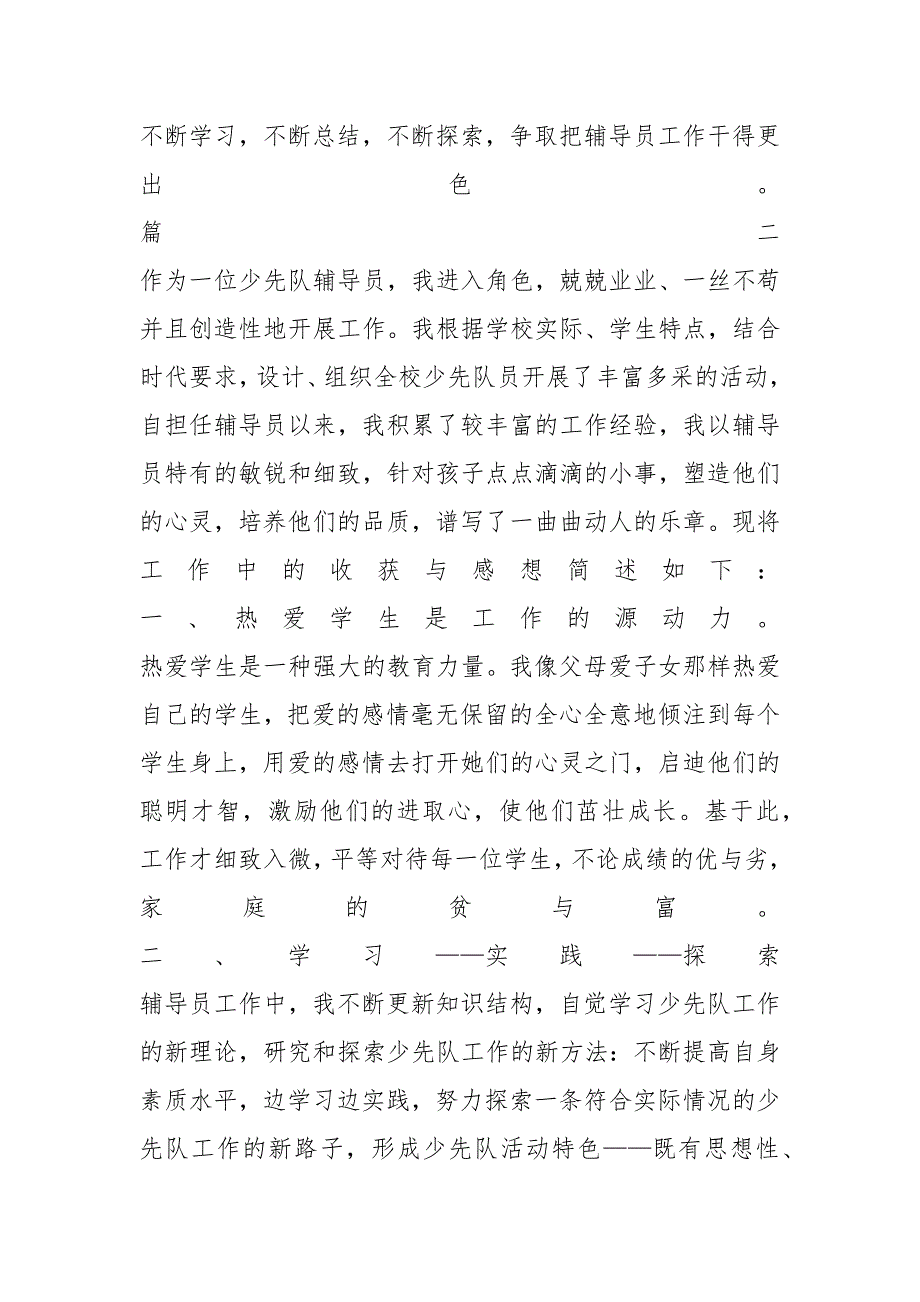 不断学习，不断总结，不断探索，争取把辅导员工作干得更
出色。
篇二
作为一位少先队辅导员，我进入角色，兢兢业业、一丝不苟
并且创造性地开展工作。我根据学校实际、学生特点，结合
时代要求，设计、组织全校少先队员开展了丰富多采的活动，
自担任辅导员以来，我积累了较丰富的工作经验，我以辅导
员特有的敏锐和细致，针对孩子点点滴滴的小事，塑造他们
的心灵，培养他们的品质，谱写了一曲曲动人的乐章。现将
工作中的收获与感想简述如下：
一、热爱学生是工作的源动力。
热爱学生是一种强大的教育力量。我像父母爱子女那样热爱
自己的学生，把爱的感情毫无保留的全心全意地倾注到每个
学生身上，用爱的感情去打开她们的心灵之门，启迪他们的
聪明才智，激励他们的进取心，使他们茁壮成长。基于此，
工作才细致入微，平等对待每一位学生，不论成绩的优与劣，
家庭的贫与富。
二、学习——实践——探索
辅导员工作中，我不断更新知识结构，自觉学习少先队工作
的新理论，研究和探索少先队工作的新方法：不断提高自身
素质水平，边学习边实践，努力探索一条符合实际情况的少
先队工作的新路子，形成少先队活动特色——既有思想性、